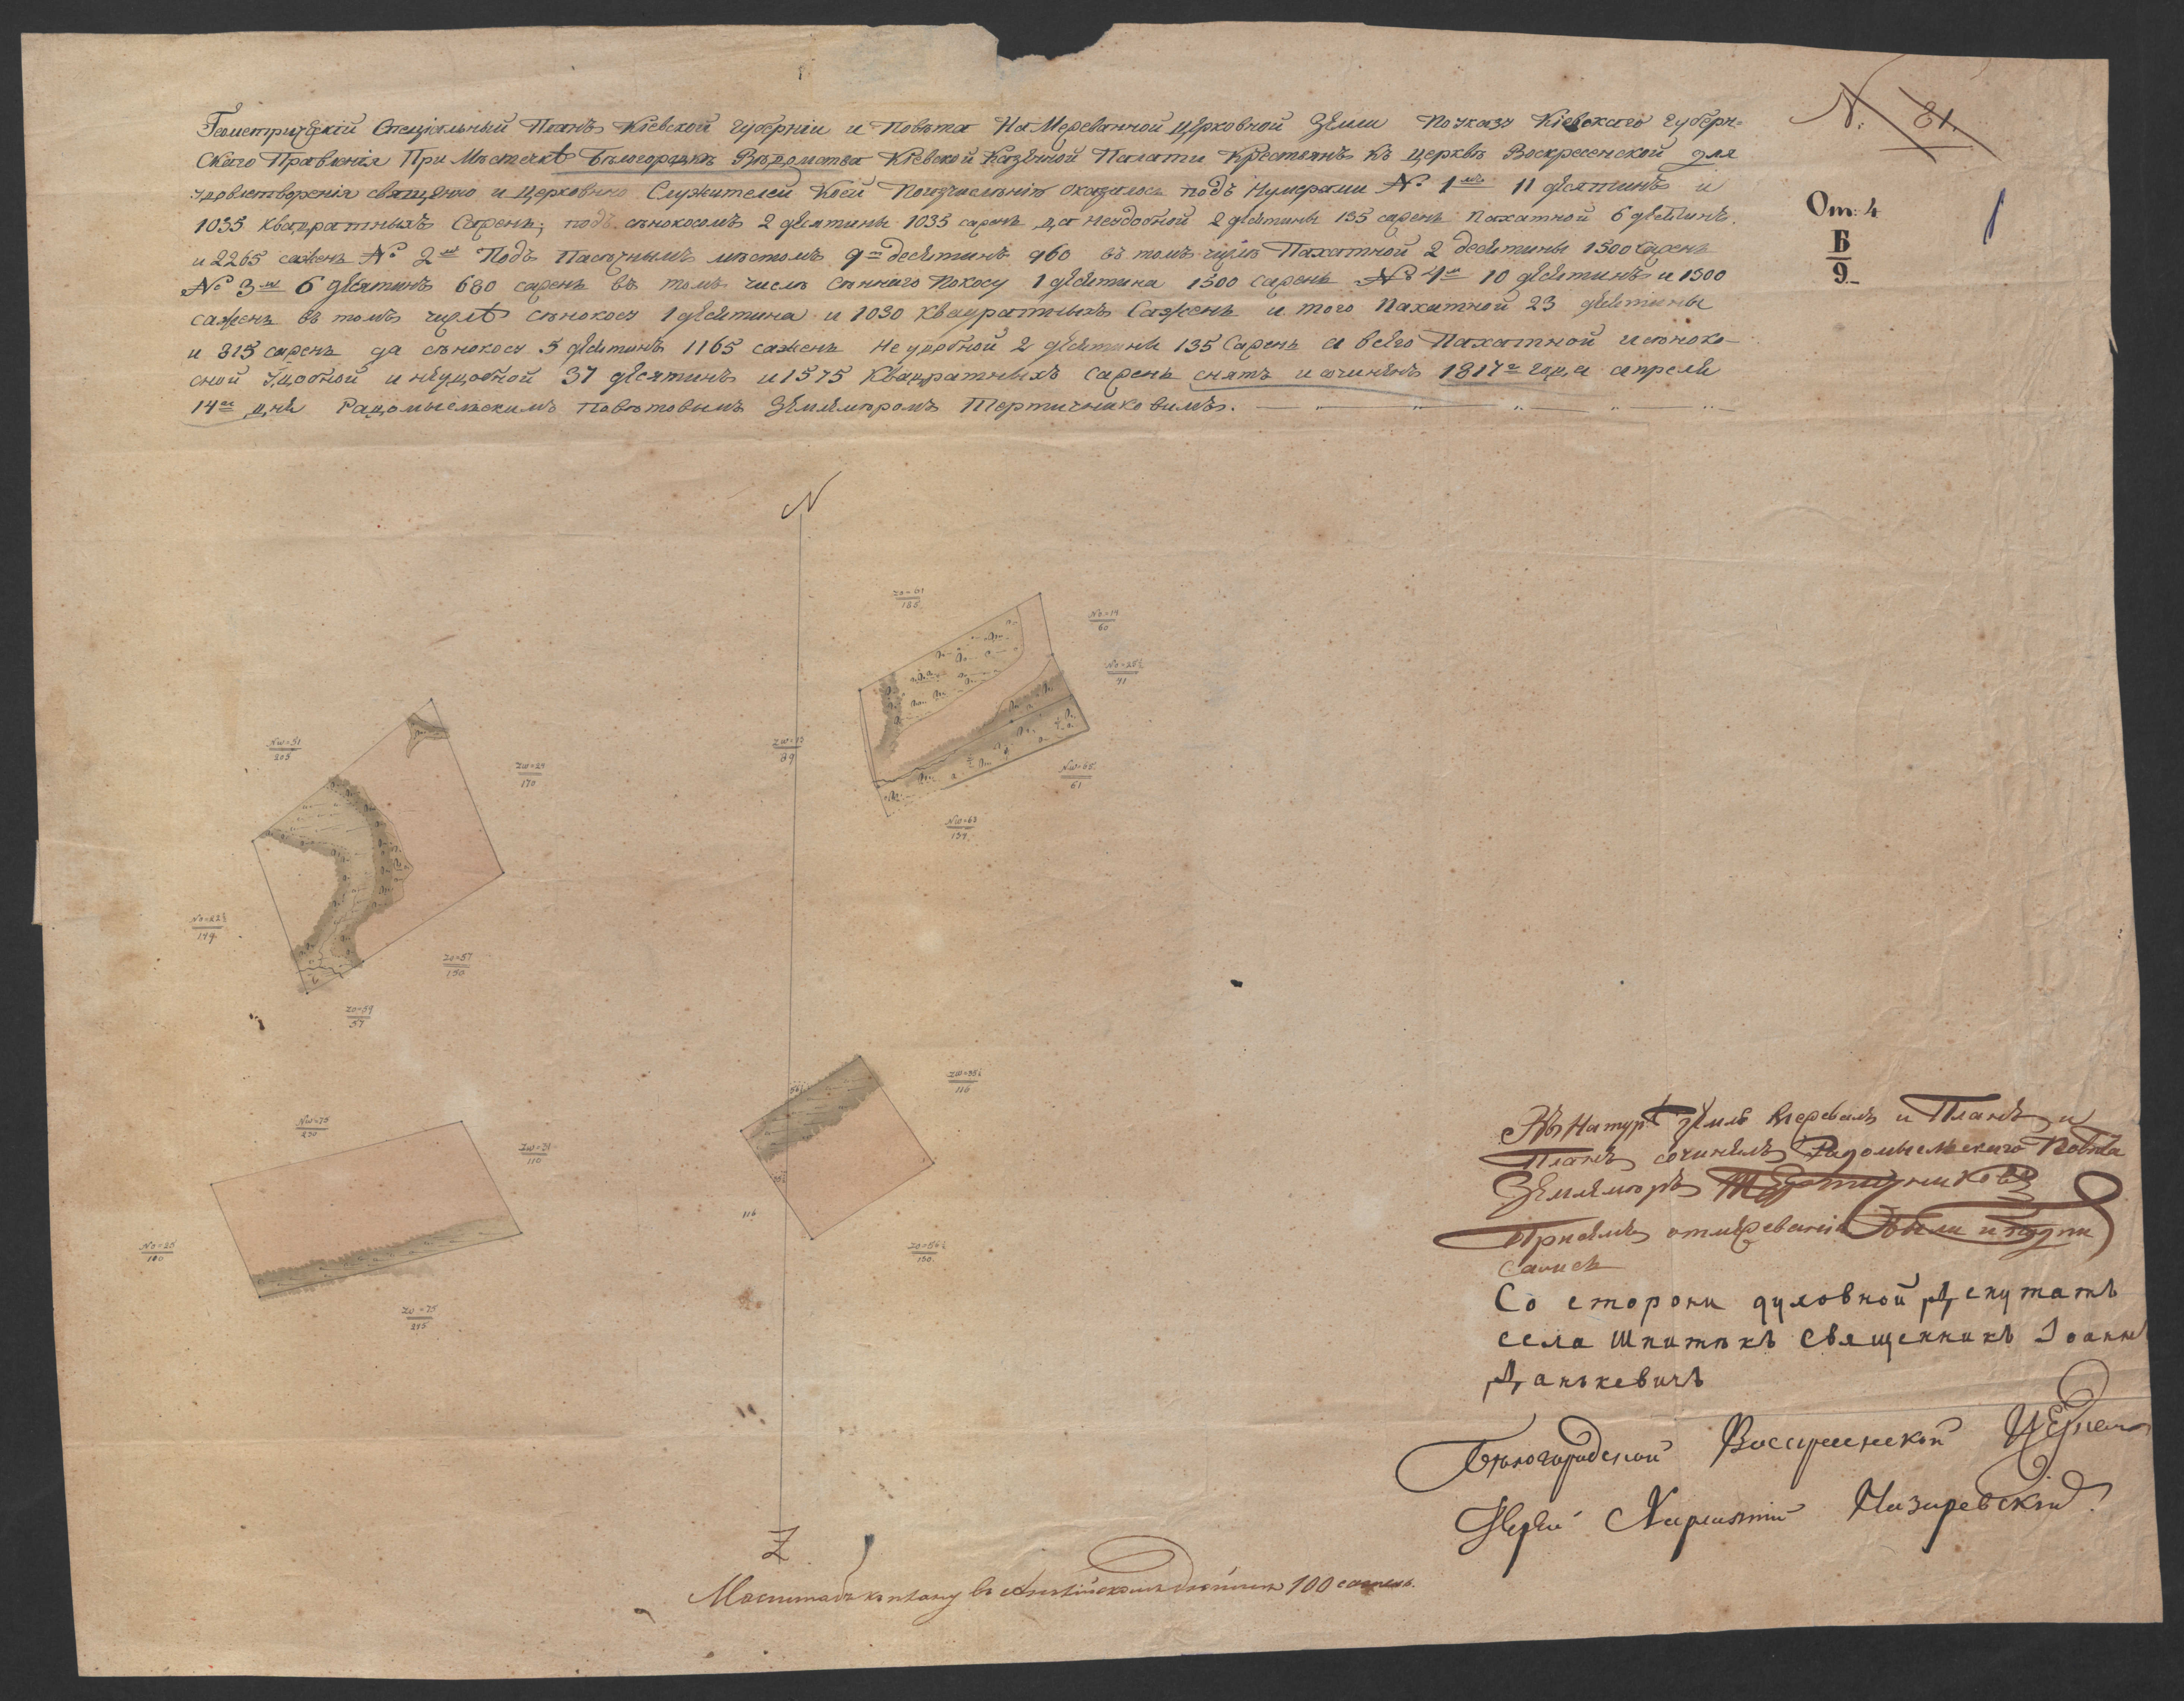 Геометрическій Спеціальный Планъ Кіевской Губерніи и Повѣта На Мереванной Церковной Земли По указу Кіевскаго Губерн=
Скаго Правленія При Мѣстечкѣ Бѣлогородкѣ Вѣдомства Кіевской Казенной Палати Крестьянъ Къ Церквѣ Воскресенской для
удовлетворенія священно и Церковно Служителей Коей По изчисленію оказалось подъ Нумерами № 1мъ 11 десятинъ и
1035 квадратныхъ Сажень; подъ сѣнокосомъ 2 десятины 1035 сажень да неудобной 2 десятины 135 сажень пахатной 6 десятинъ
и 2265 сажень № 2й Подъ Пасѣчнымъ мѣстомъ 9ть десятинъ 960 въ томъ числѣ Пахатной 2 десятины 1500 сажень
№ 3й 6 десятинъ 680 сажень въ томъ числѣ сѣннаго Покосу 1 десятина 1500 сажень № 4й 10 десятинъ и 1300
сажень въ томъ числѣ сѣнокосу 1 десятина и 1030 квадратныхъ Сажень и того Пахатной 23 десятины
и 815 сажень да сѣнокосу 5 десятинъ 1165 сажень Неудобной 2 десятины 135 Сажень а всего Пахатной и сѣноко=
сной Удобной и неудобной 37 десятинъ и 1575 Квадратныхъ сажень снятъ и сочиненъ 1817го года апреля
14го дня Радомысльскимъ повѣтовымъ Землемѣромъ Тертичниковимъ.
N: 81.
От: 4
Б
9
N
NW=51
205
170
NO=22½
149
ZO=57
150
ZO=59
57
NO=14
60
71
61
NW=63
139
NW=75
230
110
NO=20
100
ZW=75
245
ZW=35½
116
116
ZO=56½
130
Z
Въ Натурѣ землѣ мѣревалъ и Планъ и
Планъ сочинялъ Радомысльскаго Повѣта
Землемѣръ Тертичниковъ
При семъ отмѣреваніи были и подпи
сались
Со стороны духовной Депутатъ
села Шпитькъ священникъ Іоаннъ
Данкевичъ
Бѣлогородской Воскресенской Церкви
Іерей Харлампій Назаревскій.
Масштабъ къ плану въ Английскомъ дюймѣ 100 сажень.